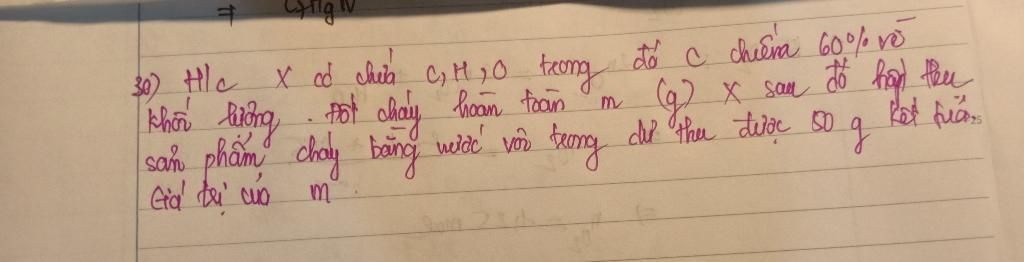 ⇒ C₇H₉N
30) H/c X có chứa C, H, O trong đó C chiếm 60% về
khối lượng. Đốt cháy hoàn toàn m (g) X sau đó hấp thu
sản phẩm cháy bằng nước vôi trong dư thu được 50 g kết tủa.
Giá trị của m.